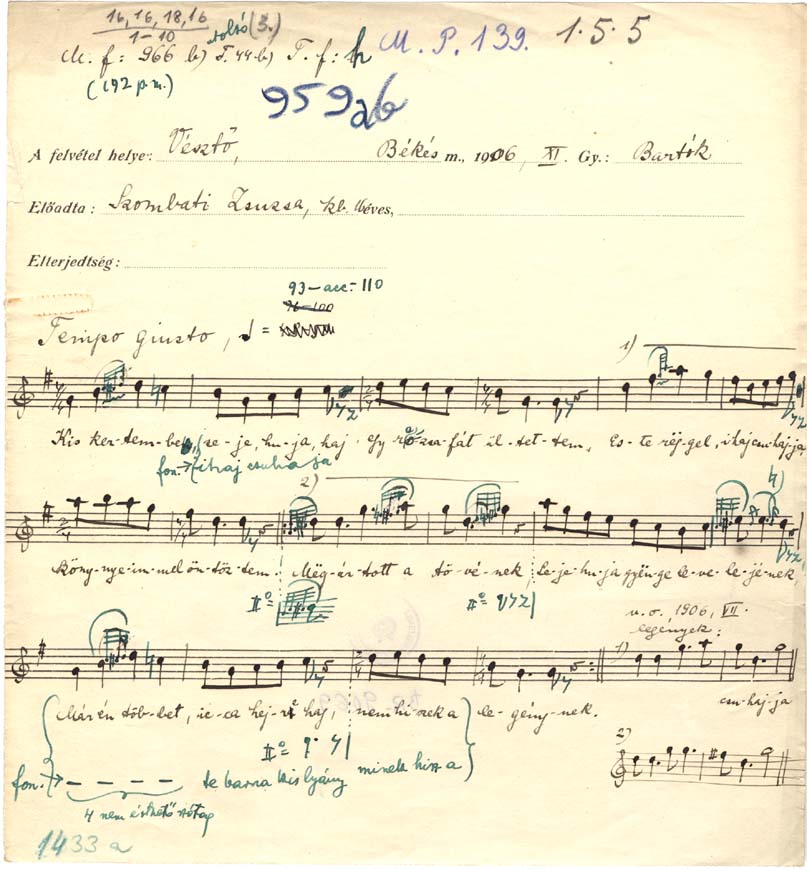 16, 16, 18, 16
1-10
utolsó (3.)
M. f: 966 b) T. 44-b) T. f: h
M. P. 139.
1.5.5
(192 p.m.)
959ab
A felvétel helye: Vésztő, Békés m., 1906, XI. Gy.: Bartók
Előadta: Szombati Zsuzsa, kb. éves,
Elterjedtség:
93-acc.-110
76-100
Tempo giusto, ♩ =
1)
Kis ker-tem-be, (se-je, hu-ja, haj egy ró-zsa-fát ül-tet-tem, Es-te rëg-gel, ihajcsuhaj-ja,
fon. → (ihaj csuhaja
2)
4)
köny-nye-im-mel ön-töz-tem. Mëg-ár-tott a tö-vé-nek le-je-hu-ja gyën-ge le-ve-le-jé-nek,
II°=
II°=
v. ö. 1906, VII.
legények:
1)
Már én töb-bet, ic-ca hej-re haj, nem hi-szek a le-gény-nek.
csu-haj-ja
II°=
2)
fon. → – – – – te barna kis lyány minek hisz a
4 nem érthető szótag
1433 a